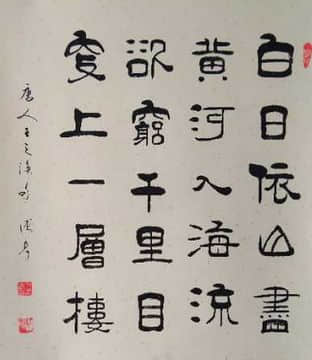 白日依山盡
黃河入海流
欲窮千里目
更上一層樓
唐人王之渙